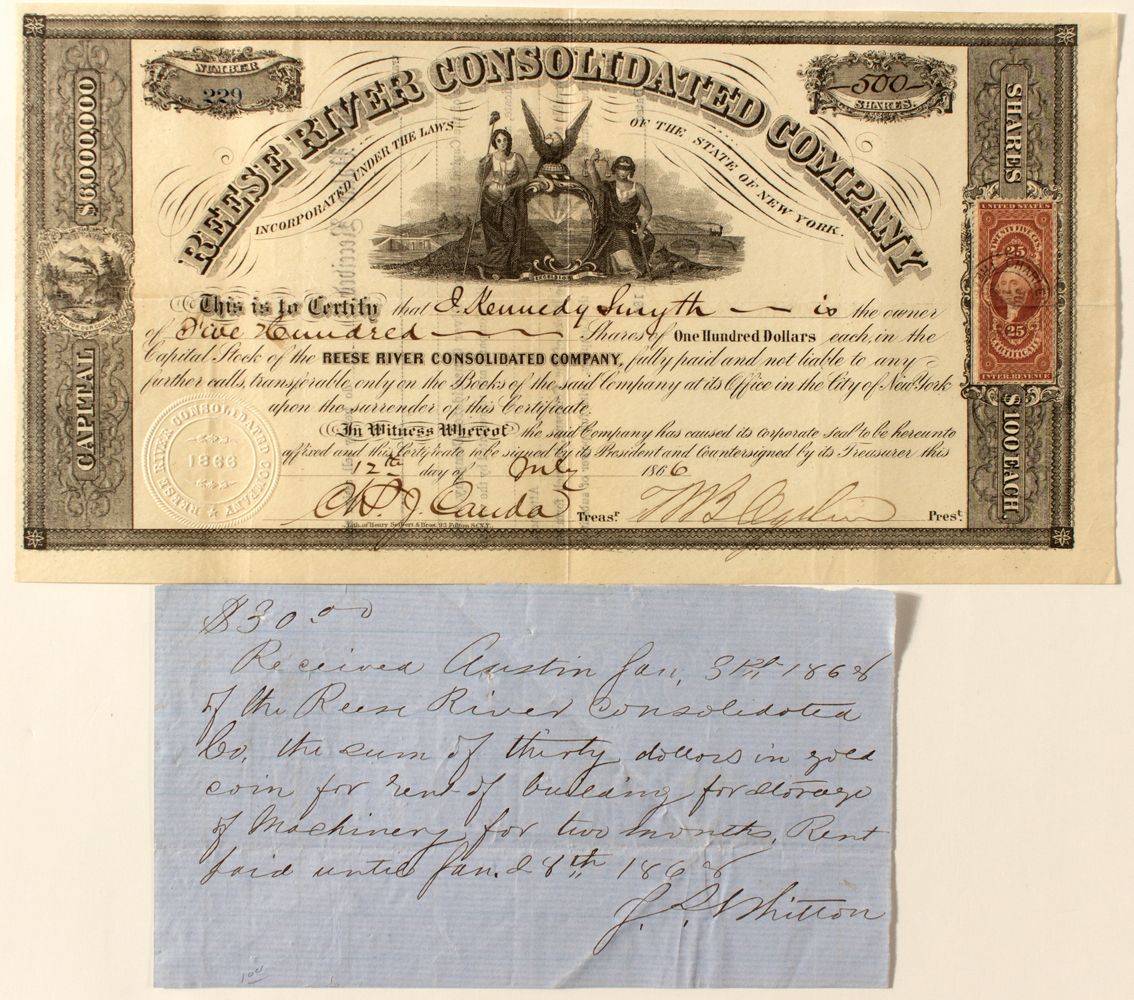 NUMBER
229
500
SHARES.
REESE RIVER CONSOLIDATED COMPANY
INCORPORATED UNDER THE LAWS OF THE STATE OF NEW YORK.
EXCELSIOR
CAPITAL $6,000,000
SHARES
$100 EACH
UNITED STATES
TWENTY FIVE CENTS
25
25
CERTIFICATE
INTER. REVENUE
This is to Certify that J. Kennedy Smyth — is the owner
of Five Hundred — Shares of One Hundred Dollars each, in the
Capital Stock of the REESE RIVER CONSOLIDATED COMPANY, fully paid and not liable to any
further calls, transferable only on the Books of the said Company at its Office in the City of New York
upon the surrender of this Certificate.
In Witness Whereof the said Company has caused its corporate seal to be hereunto
affixed and this Certificate to be signed by its President and Countersigned by its Treasurer this
12th day of July 1866
Canda Treasr. Prest.
Lith. of Henry Seibert & Bros. 93 Fulton St. N.Y.
REESE RIVER CONSOLIDATED COMPANY
1866
$30.00
Received Austin Jan, 3rd 1868
of the Reese River Consolidated
Co, the sum of thirty dollars in gold
coin for rent of building for storage
of Machinery for two months. Rent
paid until Jan. 28th 1868
J. S. Whitton
100